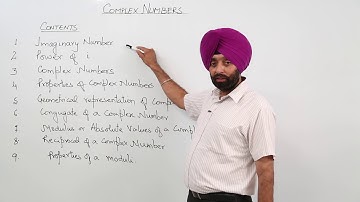 COMPLEX NUMBERS
CONTENTS
1 Imaginary Number
2 Power of i
3 Complex Numbers
4 Properties of Complex Numbers
5 Geometrical representation of Compl
6 Conjugate of a Complex Number
7 Modulus or Absolute Values of a Compl
8 Reciprocal of a Complex Number
9. Properties of a module.